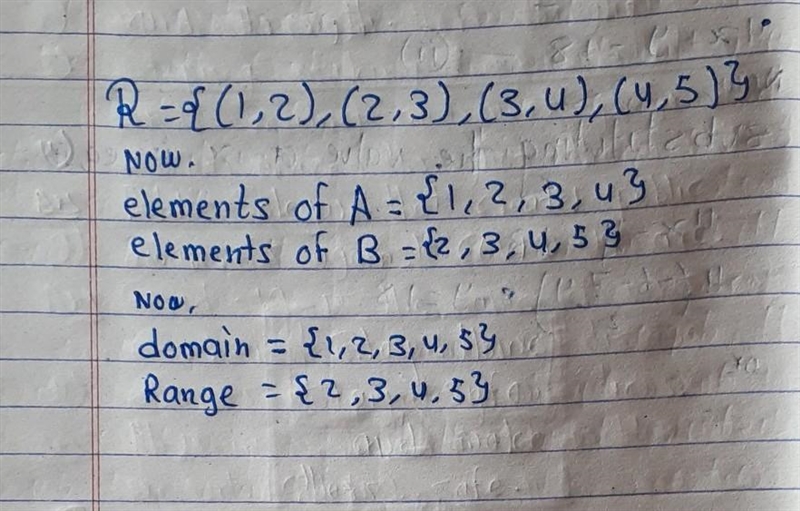 R = {(1,2), (2,3), (3,4), (4,5)}
NOW.
elements of A = {1, 2, 3, 4}
elements of B = {2, 3, 4, 5}
Now,
domain = {1,2,3,4,5}
Range = {2,3,4,5}